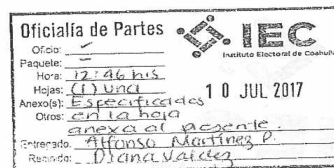 Oficialía de Partes
IEC
Instituto Electoral de Coahuila
Oficio: ✓
Paquete: –
Hora: 12:46 hrs
Hojas: (1) una
Anexo(s): Especificados
Otros: en la hoja
anexa al presente.
10 JUL 2017
Entregado: Alfonso Martínez P.
Recibido: Diana Valdez